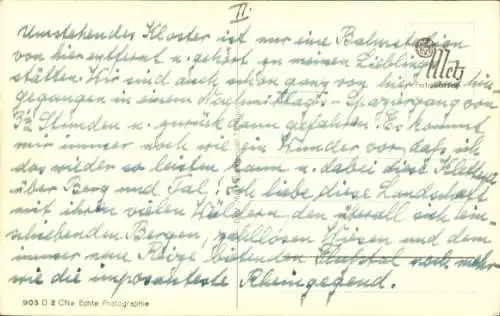 II.
Umstehendes Kloster ist nur eine Bahnstation
von hier entfernt u. gehört zu meinen Lieblings-
stätten. Wir sind auch schon ganz von hier hin-
gegangen in einem Nachmittags-Spaziergang von
Stunden u. zurück dann gefahren. Es kommt
mir immer noch wie ein Wunder vor, daß ich
das wieder so leisten kann u. dabei diese Kletterei
über Berg und Tal! Ich liebe diese Landschaft
mit ihren vielen Wäldern, den überall sich ein-
schiebenden Bergen, zahllosen Wiesen und dem
immer neue Reize bietenden noch mehr
wie die imposanteste Rheingegend.
Metz
903 D 2 CNe Echte Photographie